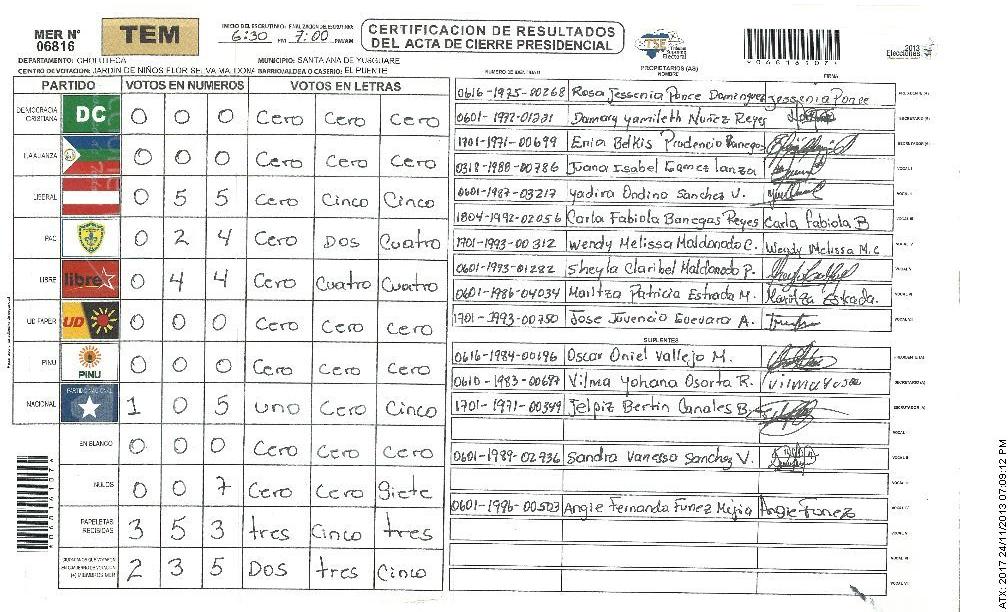 MER Nº
06816
TEM
INICIO DEL ESCRUTINIO: FINALIZACION DE ESCRUTINIO:
6:30 PM 7:00 PM/AM
CERTIFICACION DE RESULTADOS
DEL ACTA DE CIERRE PRESIDENCIAL
TSE
Tribunal Supremo Electoral
2013
Elecciones
DEPARTAMENTO: CHOLUTECA
MUNICIPIO: SANTA ANA DE YUSGUARE
CENTRO DE VOTACION: JARDIN DE NIÑOS FLOR SELVA MALDONA BARRIO/ALDEA O CASERIO: EL PUENTE
PARTIDO VOTOS EN NUMEROS VOTOS EN LETRAS
DEMOCRACIA CRISTIANA DC 0 0 0 Cero Cero Cero
0 0 0 Cero Cero Cero
LIBERAL 0 5 5 Cero Cinco Cinco
PAC 0 2 4 Cero Dos Cuatro
LIBRE libre 0 4 4 Cero Cuatro Cuatro
UD FAPER UD 0 0 0 Cero Cero Cero
PINU PINU 0 0 0 Cero Cero Cero
NACIONAL PARTIDO NACIONAL 1 0 5 uno Cero Cinco
EN BLANCO 0 0 0 Cero Cero Cero
NULOS 0 0 7 Cero Cero Siete
PAPELETAS RECIBIDAS 3 5 3 tres Cinco tres
2 3 5 Dos tres Cinco
PROPIETARIOS (AS)
NUMERO DE IDENTIDAD NOMBRE FIRMA
0616-1975-00268 Rosa Jessenia Ponce Dominguez Jessenia Ponce
0601-1972-01221 Damary Yamileth Nuñez Reyes
1701-1971-00699 Enia Belkis Prudencio Banegas
0318-1988-00786 Juana Isabel Gomez Lanza
0601-1987-03217 Yadira Ondino Sanchez V.
1804-1992-02056 Carla Fabiola Banegas Reyes Carla Fabiola B
1701-1993-00312 Wendy Melissa Maldonado C. Wendy Melissa M.C
0601-1993-01282 Sheyla Claribel Maldonado P.
0601-1986-04034 Maritza Patricia Estrada M. Maritza Estrada.
1701-1993-00750 Jose Juvencio Guevara A.
SUPLENTES
0616-1984-00196 Oscar Oniel Vallejo M.
0610-1983-00697 Vilma Yohana Osorta R.
1701-1971-00349 Jelpiz Bertin Canales B.
0601-1989-02736 Sandra Vanessa Sanchez V.
0601-1996-00503 Angie Fernanda Funez Mejia Angie Funez
ATX: 2017 24/11/2013 07:09:12 PM